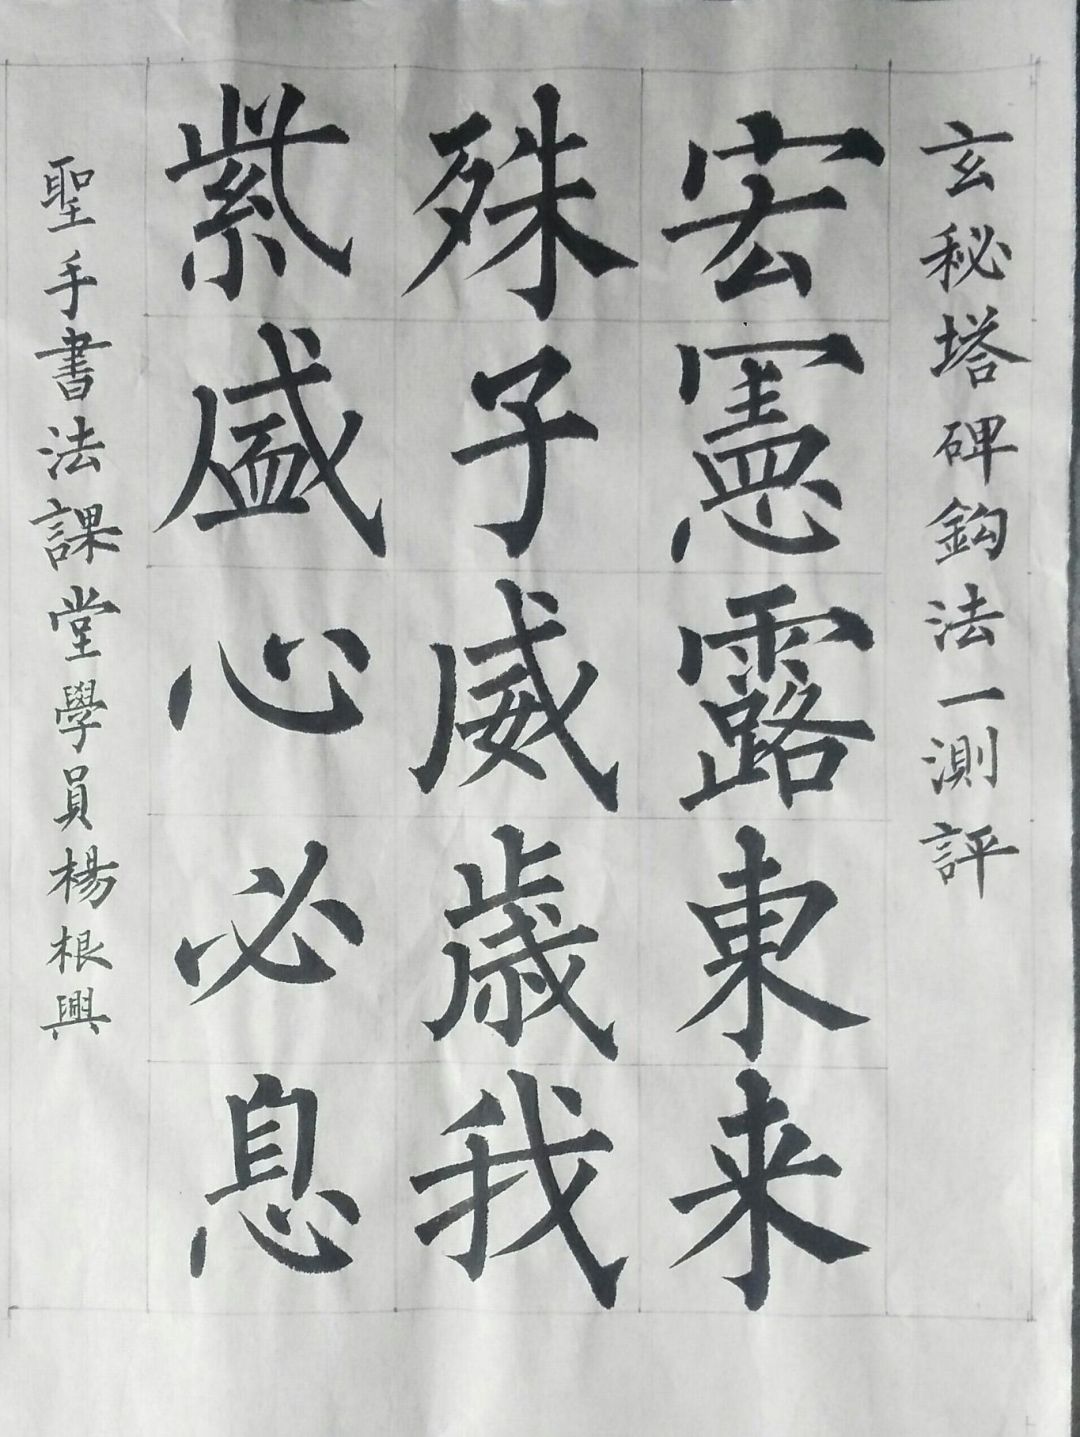 玄秘塔碑鈎法一測評
宏憲露東来
殊子威歳我
紫盛心必息
聖手書法課堂學員楊根興